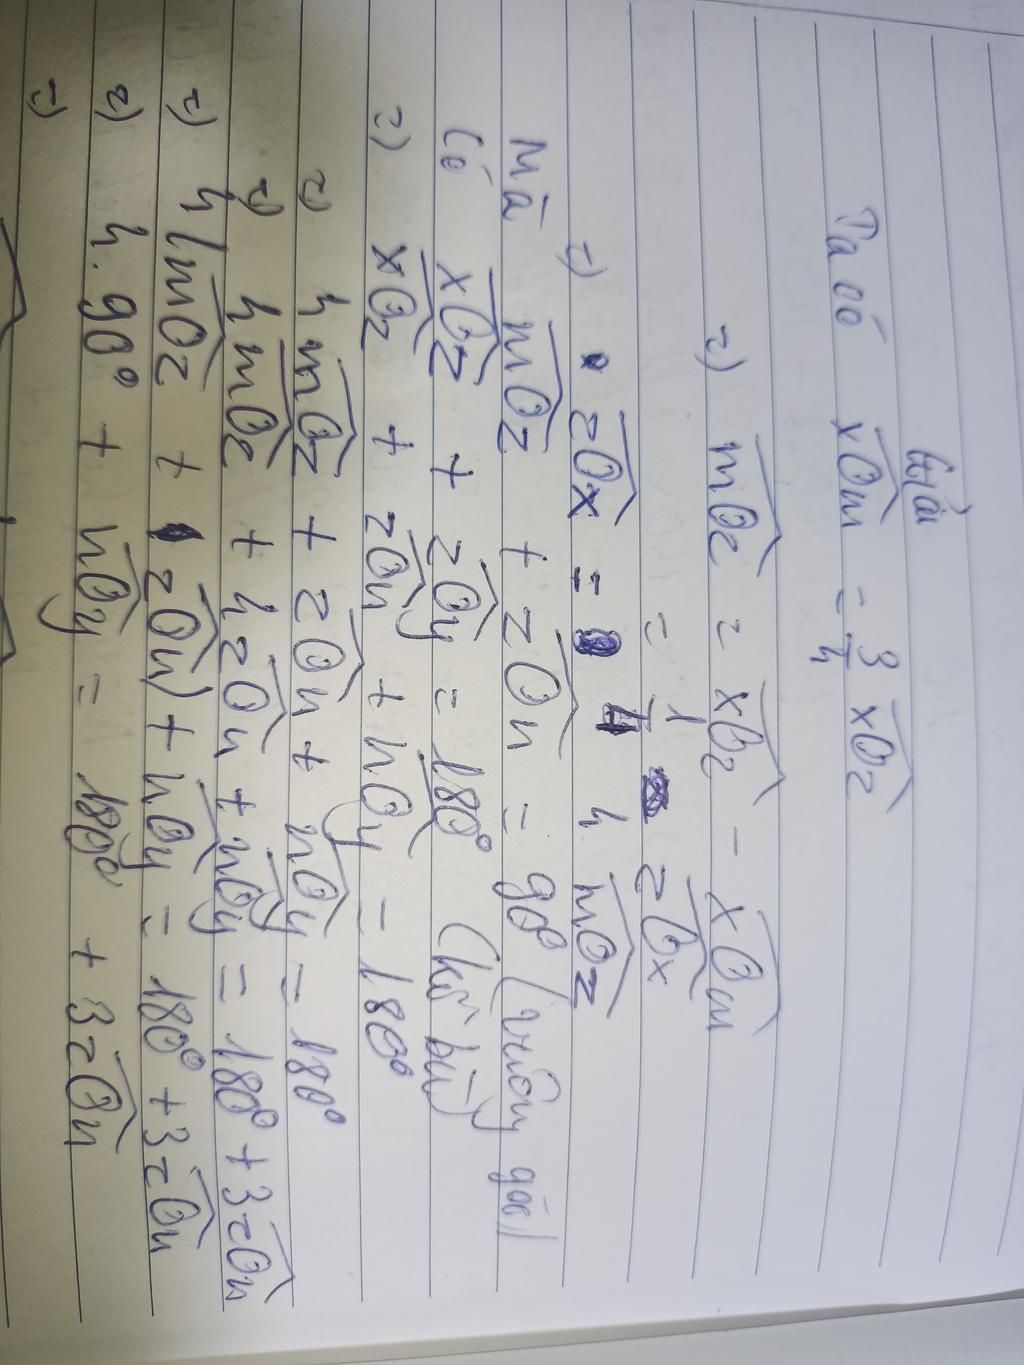 Giải
Ta có xOm = 3/4 xOz
=) mOz = xOz - xOm
= 1/4 zOx
=) zOx = 4 mOz
Mà mOz + zOn = 90° (vuông góc)
Có xOz + zOy = 180° (kề bù)
=) xOz + zOn + nOy = 180°
=) 4 mOz + zOn + nOy = 180°
=) 4 mOz + 4 zOn + nOy = 180° + 3 zOn
=) 4(mOz + zOn) + nOy = 180° + 3 zOn
=) 4.90° + nOy = 180° + 3 zOn
=)